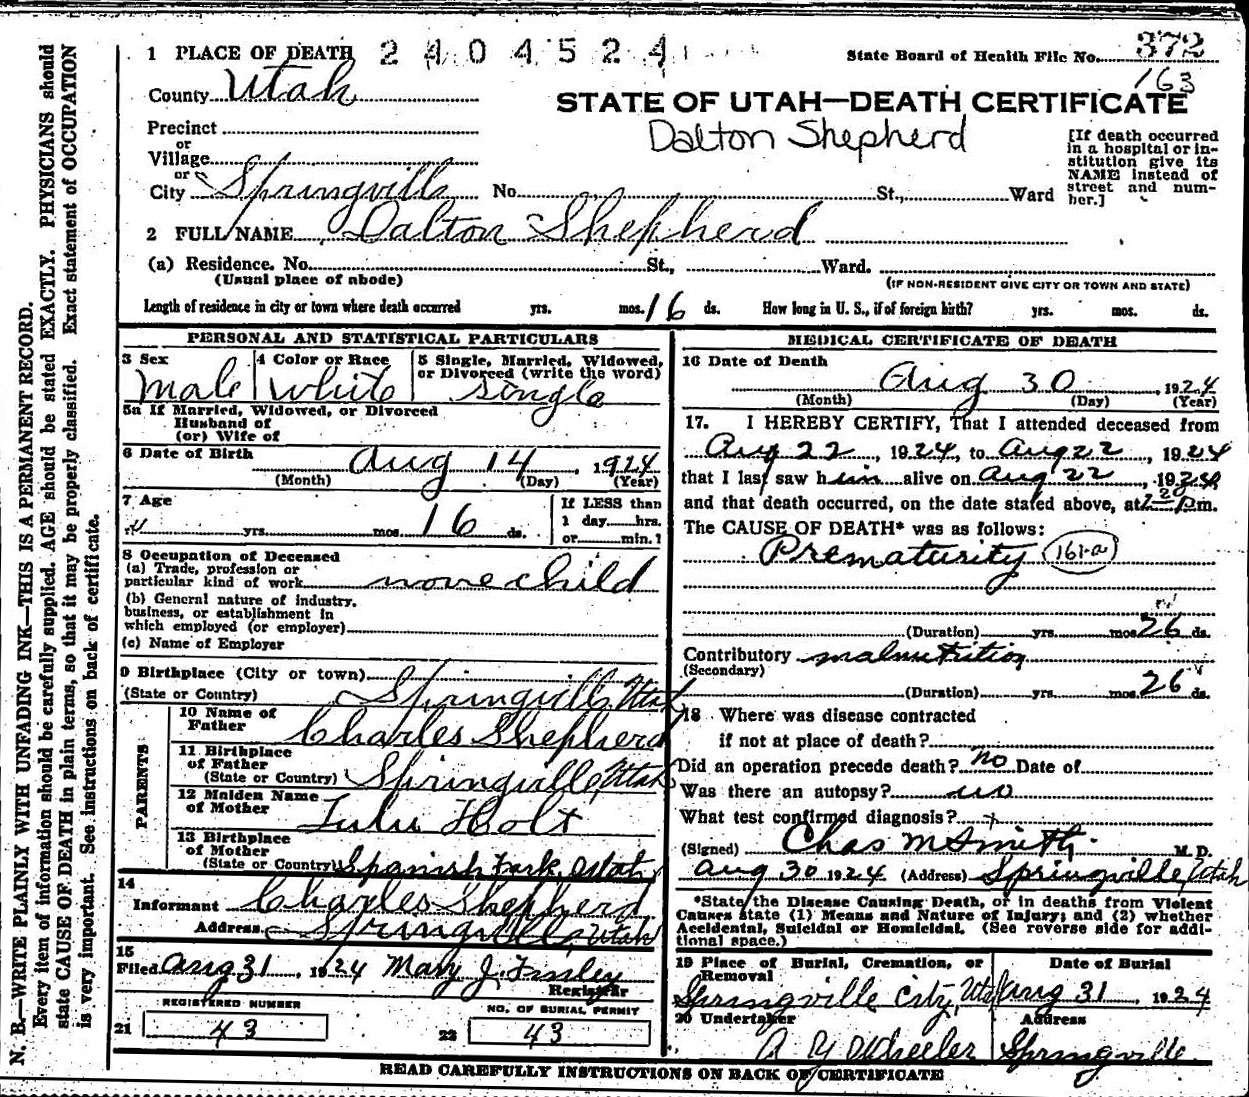 1 PLACE OF DEATH 2404524
State Board of Health File No. 372
163
County Utah
STATE OF UTAH—DEATH CERTIFICATE
Dalton Shepherd
Precinct
or
Village
or
City Springville No. St., Ward
[If death occurred
in a hospital or in-
stitution give its
NAME instead of
street and num-
ber.]
2 FULL NAME Dalton Shepherd
(a) Residence. No. St., Ward.
(Usual place of abode) (IF NON-RESIDENT GIVE CITY OR TOWN AND STATE)
Length of residence in city or town where death occurred yrs. mos. 16 ds. How long in U. S., if of foreign birth? yrs. mos. ds.
PERSONAL AND STATISTICAL PARTICULARS
3 Sex 4 Color or Race 5 Single, Married, Widowed,
or Divorced (write the word)
Male White Single
5a If Married, Widowed, or Divorced
Husband of
(or) Wife of
6 Date of Birth Aug 14, 1924
(Month) (Day) (Year)
7 Age If LESS than
yrs. mos. 16 ds. 1 day hrs.
or min.?
8 Occupation of Deceased
(a) Trade, profession or
particular kind of work none child
(b) General nature of industry,
business, or establishment in
which employed (or employer)
(c) Name of Employer
9 Birthplace (City or town)
(State or Country) Springville, Utah
PARENTS
10 Name of
Father Charles Shepherd
11 Birthplace
of Father
(State or Country) Springville, Utah
12 Maiden Name
of Mother Lulu Holt
13 Birthplace
of Mother
(State or Country) Spanish Fork, Utah
14
Informant Charles Shepherd
Address Springville, Utah
15
Filed Aug 31, 1924 Mary J. Finley
Registrar
REGISTERED NUMBER NO. OF BURIAL PERMIT
21 43 22 43
MEDICAL CERTIFICATE OF DEATH
16 Date of Death
Aug 30, 1924
(Month) (Day) (Year)
17. I HEREBY CERTIFY, That I attended deceased from
Aug 22, 1924, to Aug 22, 1924
that I last saw him alive on Aug 22, 1924
and that death occurred, on the date stated above, at m.
The CAUSE OF DEATH* was as follows:
Prematurity 161-a
(Duration) yrs. mos. 26 ds.
Contributory malnutrition
(Secondary)
(Duration) yrs. mos. 26 ds.
18 Where was disease contracted
if not at place of death?
Did an operation precede death? no Date of
Was there an autopsy? no
What test confirmed diagnosis?
(Signed) Chas M Smith M. D.
Aug 30 1924 (Address) Springville, Utah
*State the Disease Causing Death, or in deaths from Violent
Causes state (1) Means and Nature of Injury; and (2) whether
Accidental, Suicidal or Homicidal. (See reverse side for addi-
tional space.)
19 Place of Burial, Cremation, or Date of Burial
Removal
Springville City, Utah Aug 31, 1924
20 Undertaker Address
A Y Wheeler Springville
READ CAREFULLY INSTRUCTIONS ON BACK OF CERTIFICATE
N. B.—WRITE PLAINLY WITH UNFADING INK—THIS IS A PERMANENT RECORD.
Every item of information should be carefully supplied. AGE should be stated EXACTLY. PHYSICIANS should
state CAUSE OF DEATH in plain terms, so that it may be properly classified. Exact statement of OCCUPATION
is very important. See instructions on back of certificate.